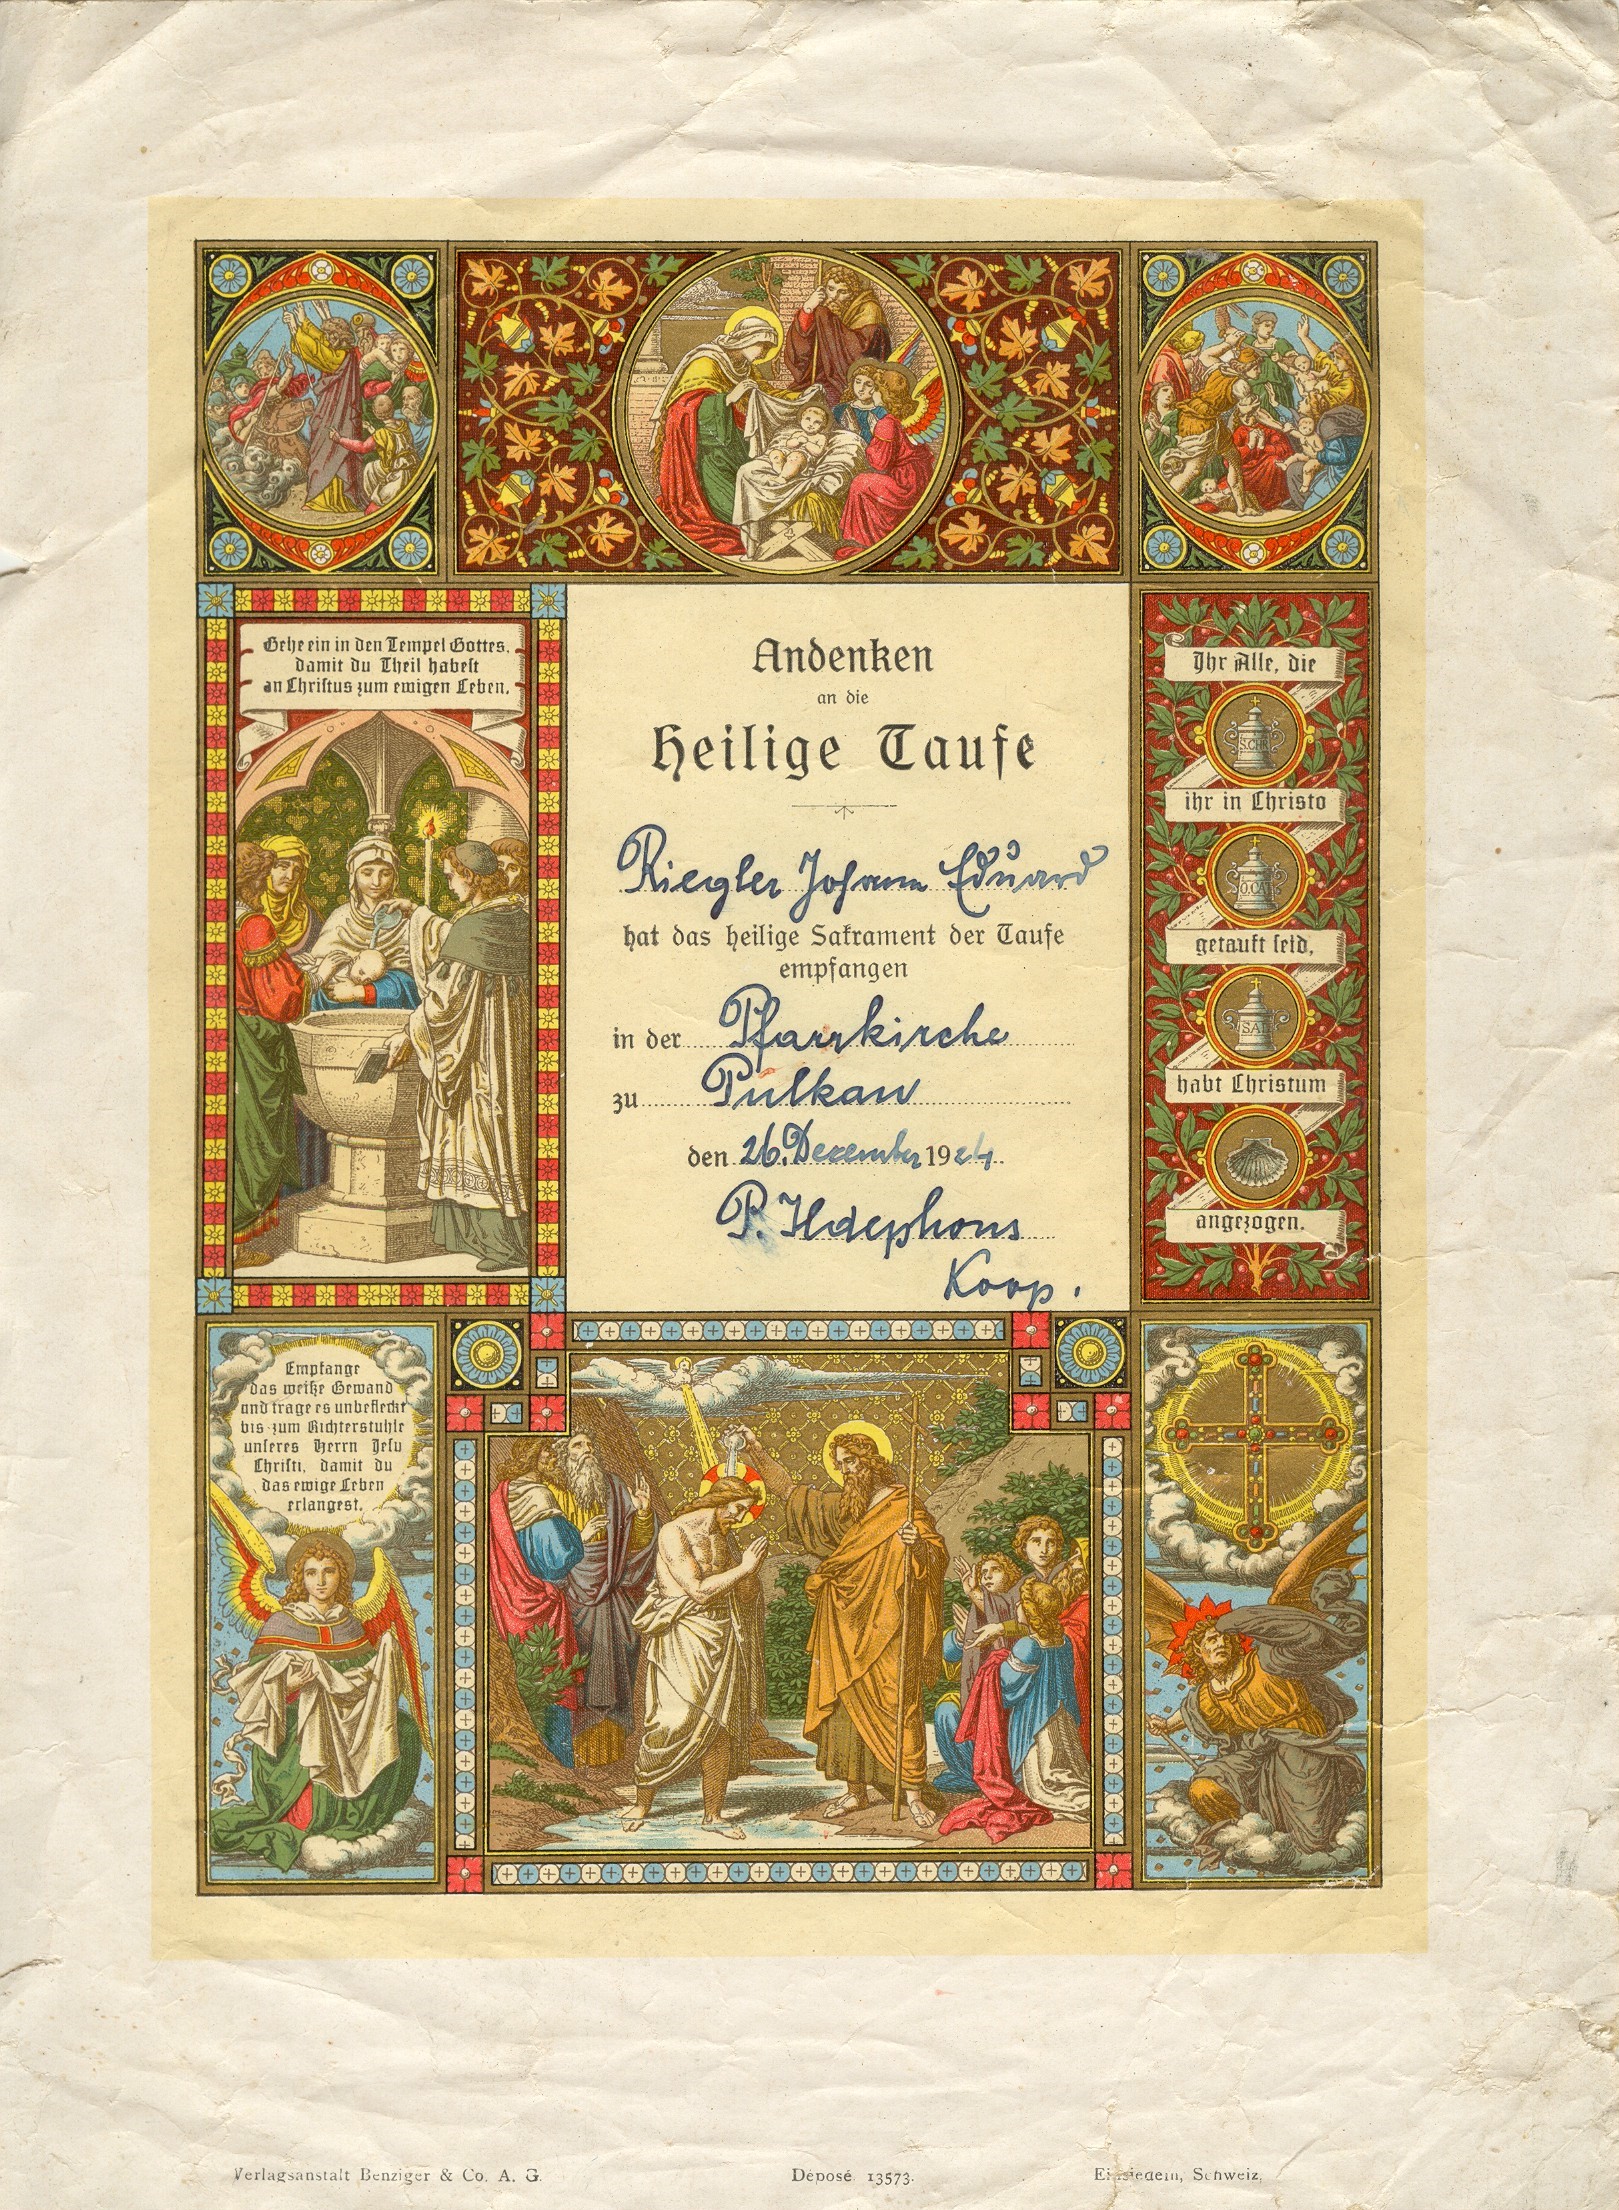 Gehe ein in den Tempel Gottes,
damit du Theil habest
an Christus zum ewigen Leben.
Andenken
an die
Heilige Taufe
Riegler Johann Eduard
hat das heilige Sakrament der Taufe
empfangen
in der Pfarrkirche
zu Pulkau
den 26. Dezember 1924.
P. Ildephons
Koop.
Ihr Alle, die
S.CHR
ihr in Christo
O.CAT
getauft seid,
SAL
habt Christum
angezogen.
Empfange
das weiße Gewand
und trage es unbefleckt
bis zum Richterstuhle
unseres Herrn Jesu
Christi, damit du
das ewige Leben
erlangest.
Verlagsanstalt Benziger & Co. A. G.
Déposé 13573.
Einsiedeln, Schweiz.